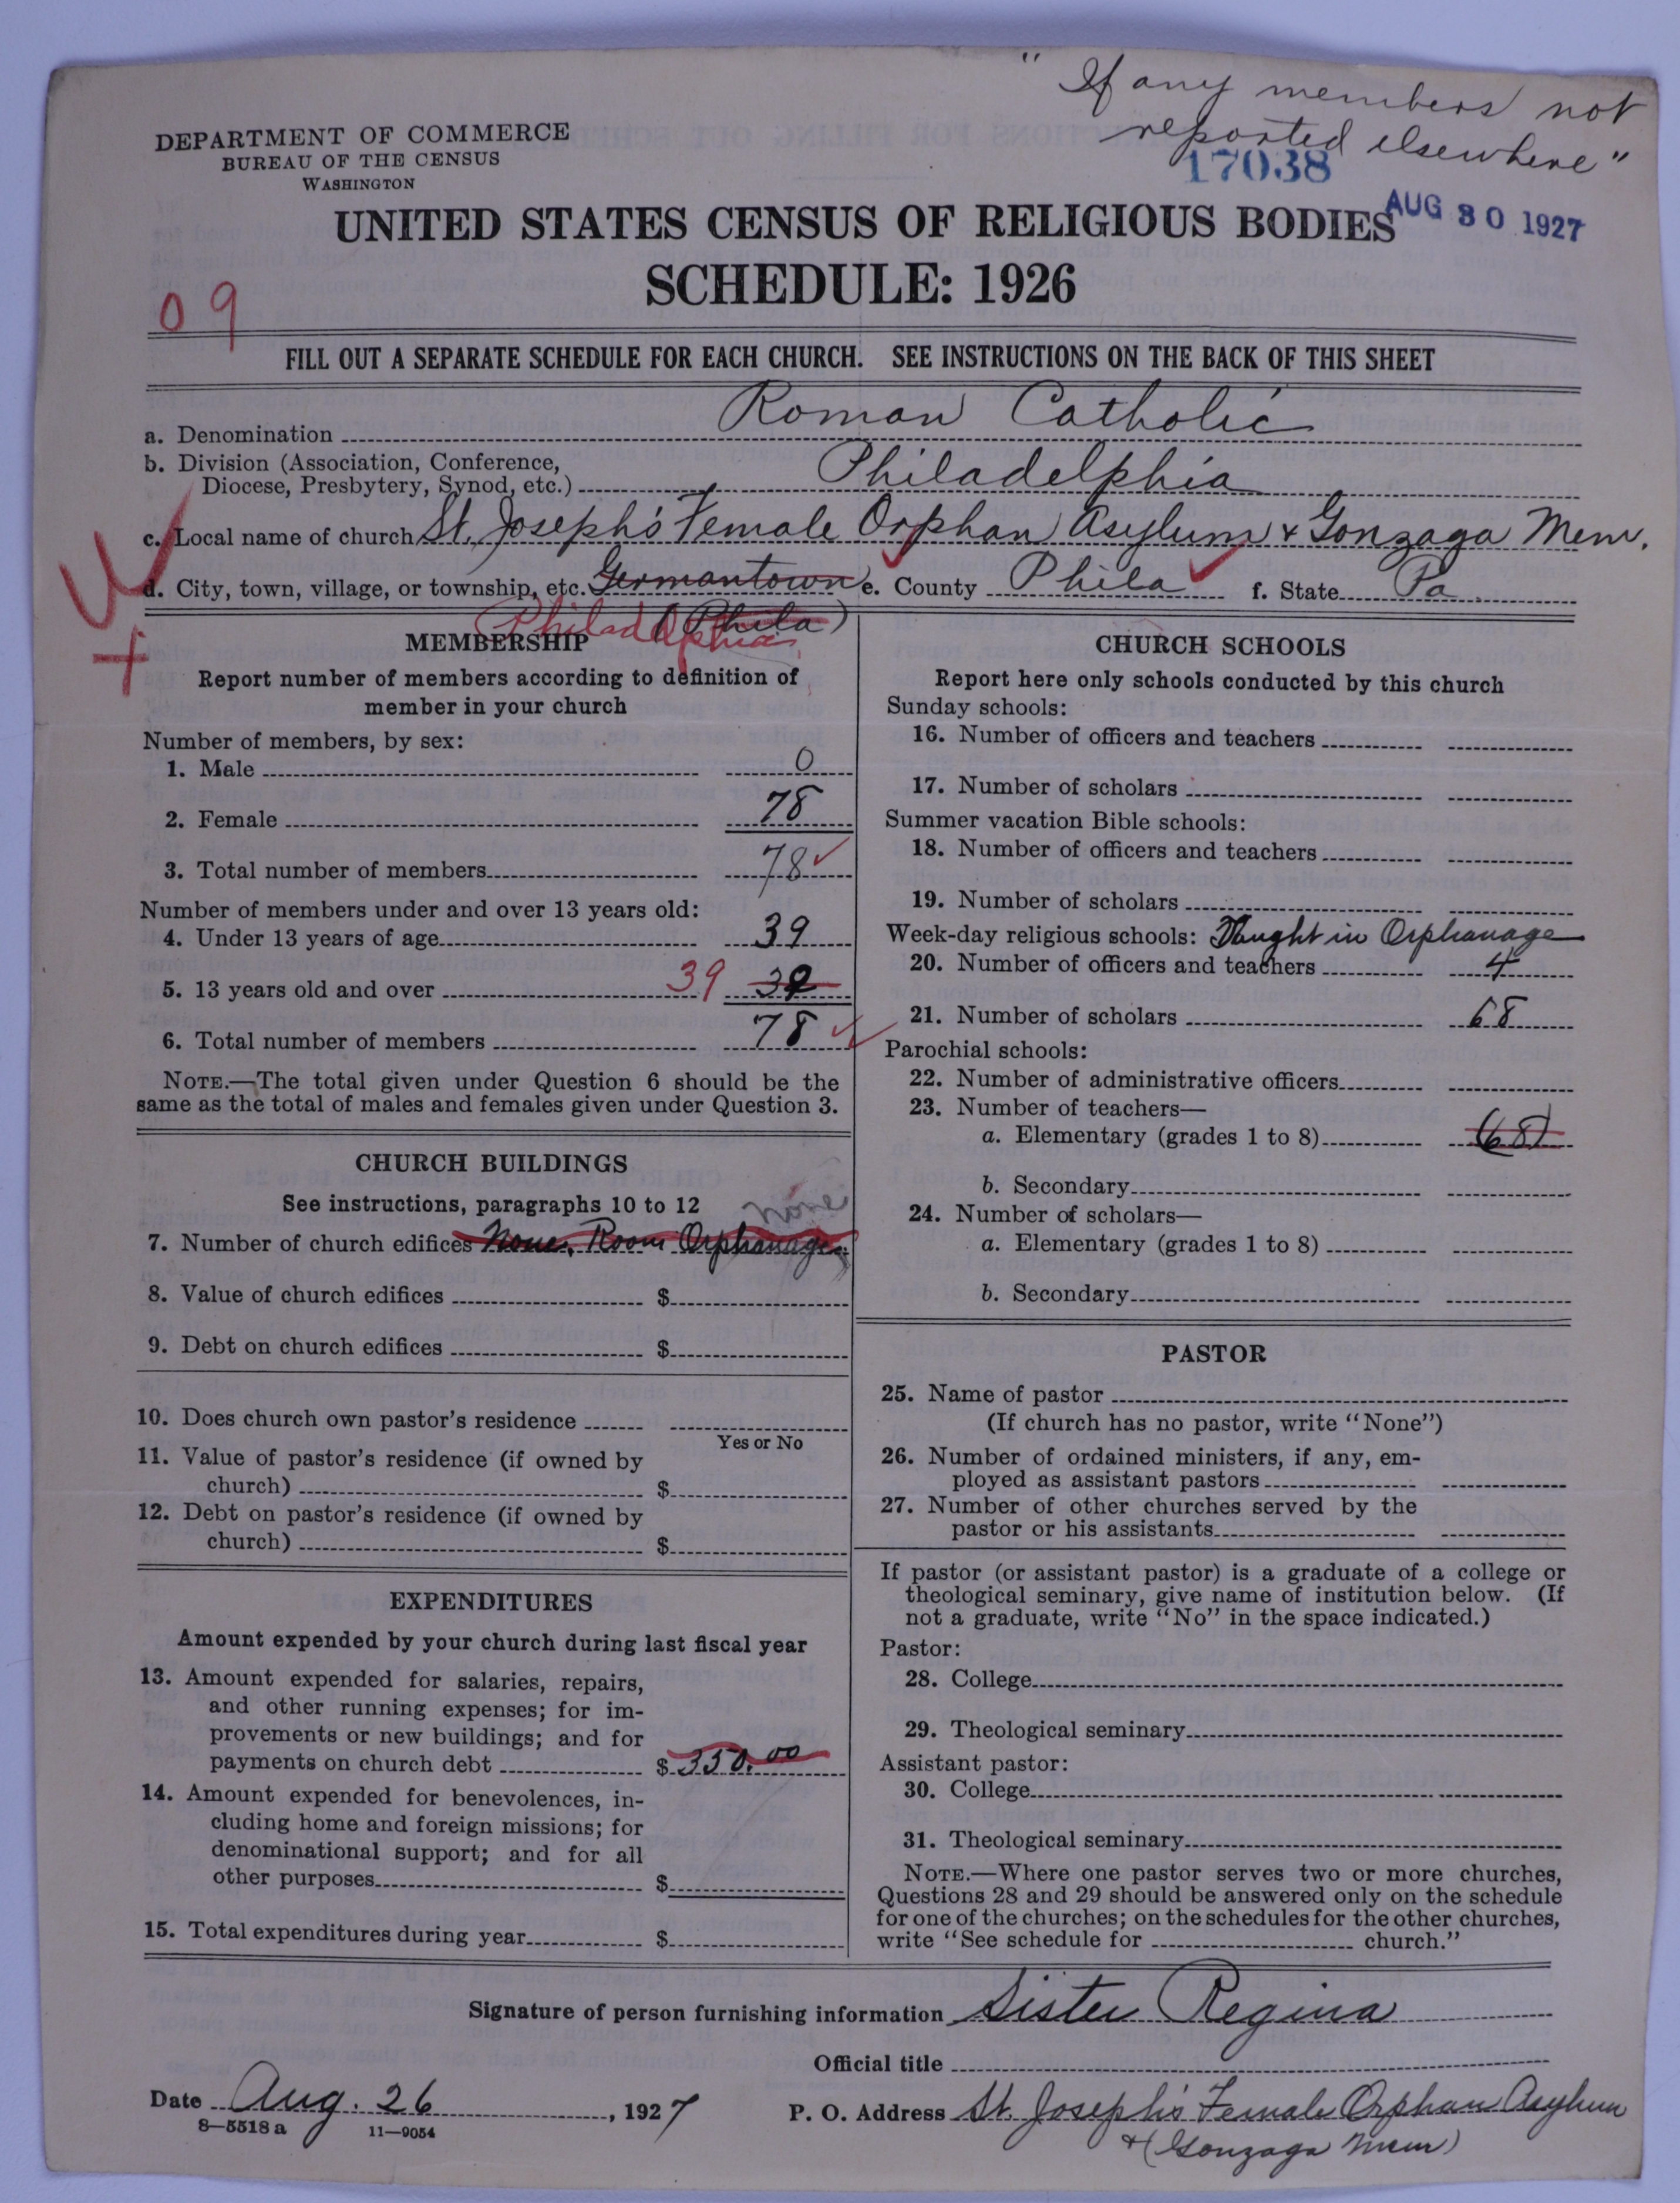 " If any members not
reported elsewhere "
DEPARTMENT OF COMMERCE
BUREAU OF THE CENSUS
WASHINGTON
17038
AUG 30 1927
UNITED STATES CENSUS OF RELIGIOUS BODIES
SCHEDULE: 1926
09
FILL OUT A SEPARATE SCHEDULE FOR EACH CHURCH. SEE INSTRUCTIONS ON THE BACK OF THIS SHEET
a. Denomination Roman Catholic
b. Division (Association, Conference,
Diocese, Presbytery, Synod, etc.) Philadelphia
c. Local name of church St. Joseph's Female Orphan Asylum & Gonzaga Mem.
d. City, town, village, or township, etc. Germantown e. County Phila f. State Pa.
(Phila)
Philadelphia
MEMBERSHIP
Report number of members according to definition of
member in your church
Number of members, by sex:
1. Male 0
2. Female 78
3. Total number of members 78
Number of members under and over 13 years old:
4. Under 13 years of age 39
5. 13 years old and over 39
6. Total number of members 78
NOTE.—The total given under Question 6 should be the
same as the total of males and females given under Question 3.
CHURCH BUILDINGS
See instructions, paragraphs 10 to 12
none
7. Number of church edifices None. Room Orphanage
8. Value of church edifices $
9. Debt on church edifices $
10. Does church own pastor's residence
Yes or No
11. Value of pastor's residence (if owned by
church) $
12. Debt on pastor's residence (if owned by
church) $
EXPENDITURES
Amount expended by your church during last fiscal year
13. Amount expended for salaries, repairs,
and other running expenses; for im-
provements or new buildings; and for
payments on church debt $ 350.00
14. Amount expended for benevolences, in-
cluding home and foreign missions; for
denominational support; and for all
other purposes $
15. Total expenditures during year $
CHURCH SCHOOLS
Report here only schools conducted by this church
Sunday schools:
16. Number of officers and teachers
17. Number of scholars
Summer vacation Bible schools:
18. Number of officers and teachers
19. Number of scholars
Week-day religious schools: Taught in Orphanage
20. Number of officers and teachers 4
21. Number of scholars 68
Parochial schools:
22. Number of administrative officers
23. Number of teachers—
a. Elementary (grades 1 to 8) (68)
b. Secondary
24. Number of scholars—
a. Elementary (grades 1 to 8)
b. Secondary
PASTOR
25. Name of pastor
(If church has no pastor, write "None")
26. Number of ordained ministers, if any, em-
ployed as assistant pastors
27. Number of other churches served by the
pastor or his assistants
If pastor (or assistant pastor) is a graduate of a college or
theological seminary, give name of institution below. (If
not a graduate, write "No" in the space indicated.)
Pastor:
28. College
29. Theological seminary
Assistant pastor:
30. College
31. Theological seminary
NOTE.—Where one pastor serves two or more churches,
Questions 28 and 29 should be answered only on the schedule
for one of the churches; on the schedules for the other churches,
write "See schedule for church."
Signature of person furnishing information Sister Regina
Official title
Date Aug. 26, 1927
P. O. Address St. Joseph's Female Orphan Asylum
& (Gonzaga Mem)
8—5518 a 11—9054